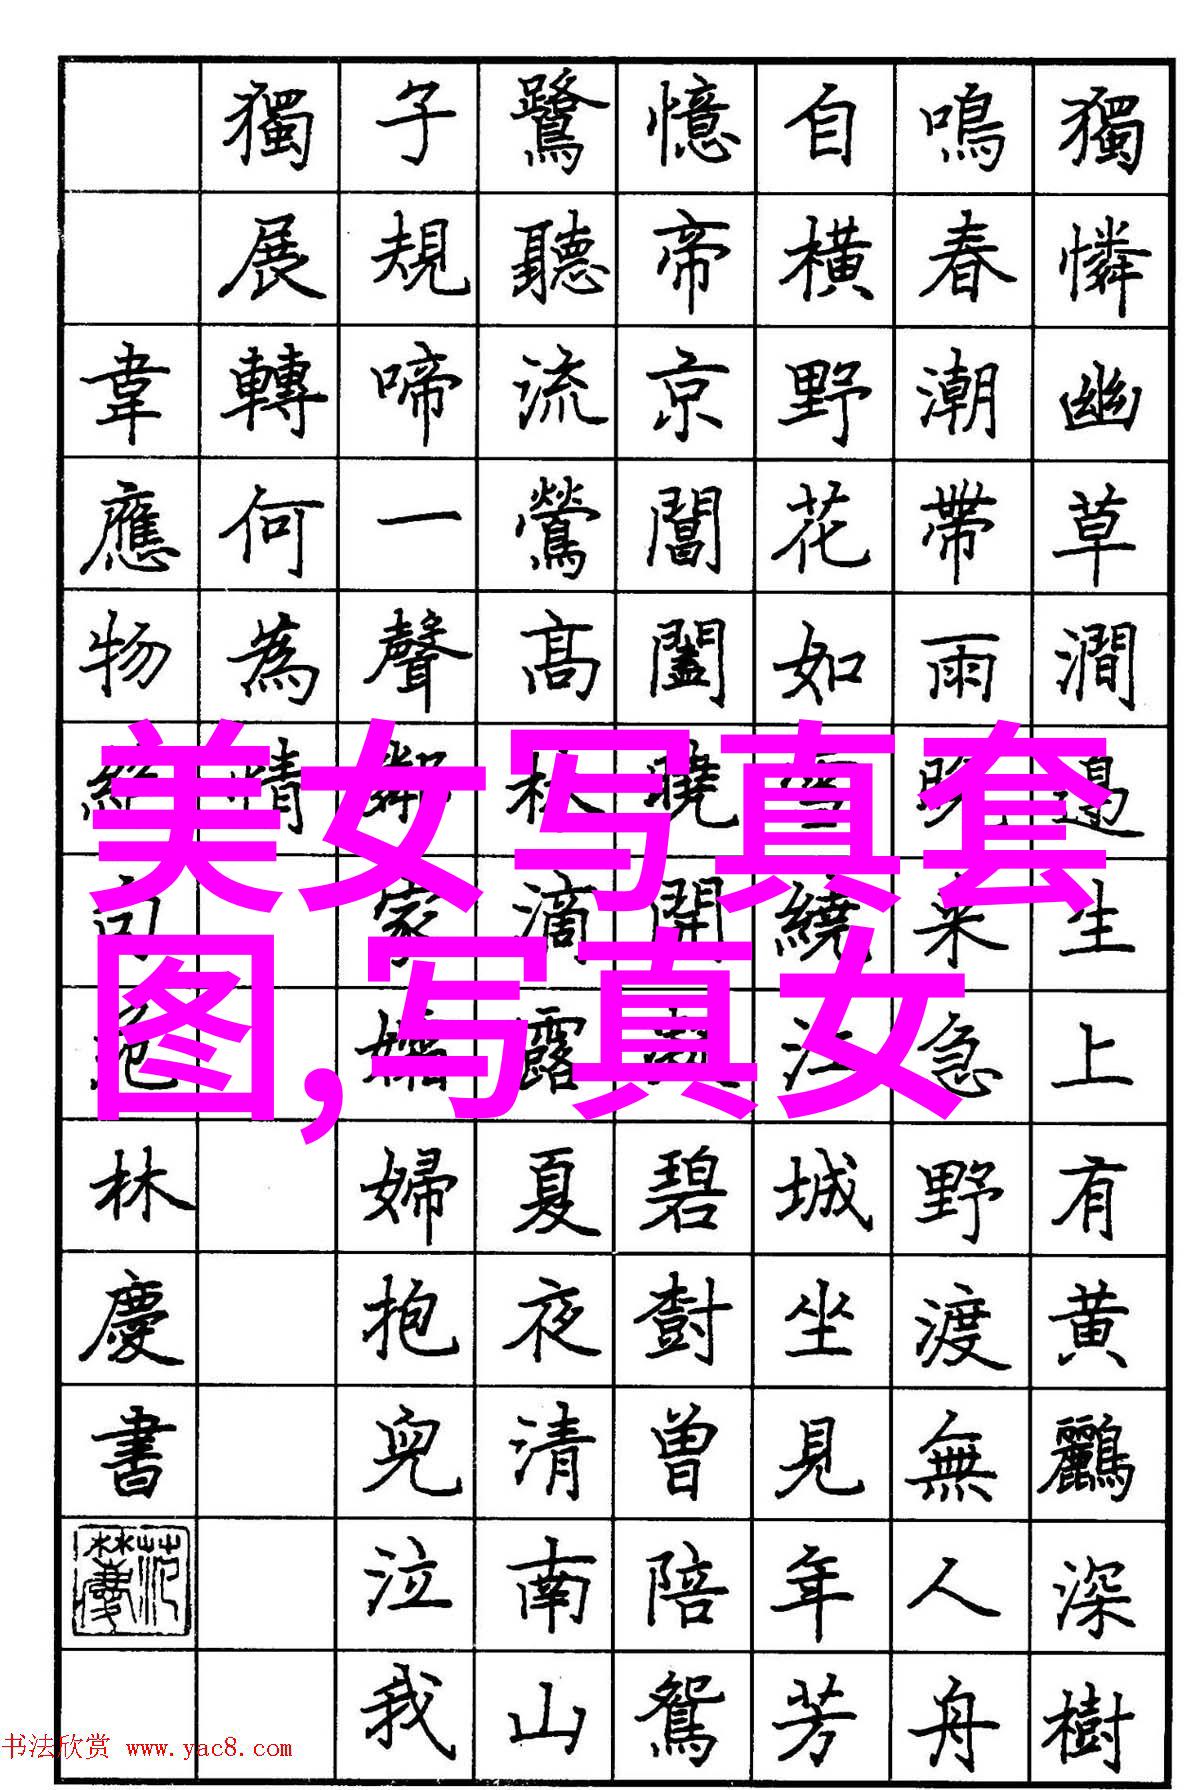 獨憐幽草澗邊生上有黄鸝深樹
鳴春潮帶雨晚来急野渡無人舟
自橫野花如雪繞江城坐見年芳
憶帝京閶闔曉開凝碧樹曾陪鴛
鷺聽流鶯高林滴露夏夜清南山
子規啼一聲鄰家孀婦抱兒泣我
獨展轉何為情
韋應物絕句林慶書
美女写真套
图,写真女
书法欣赏 www.yac8.com